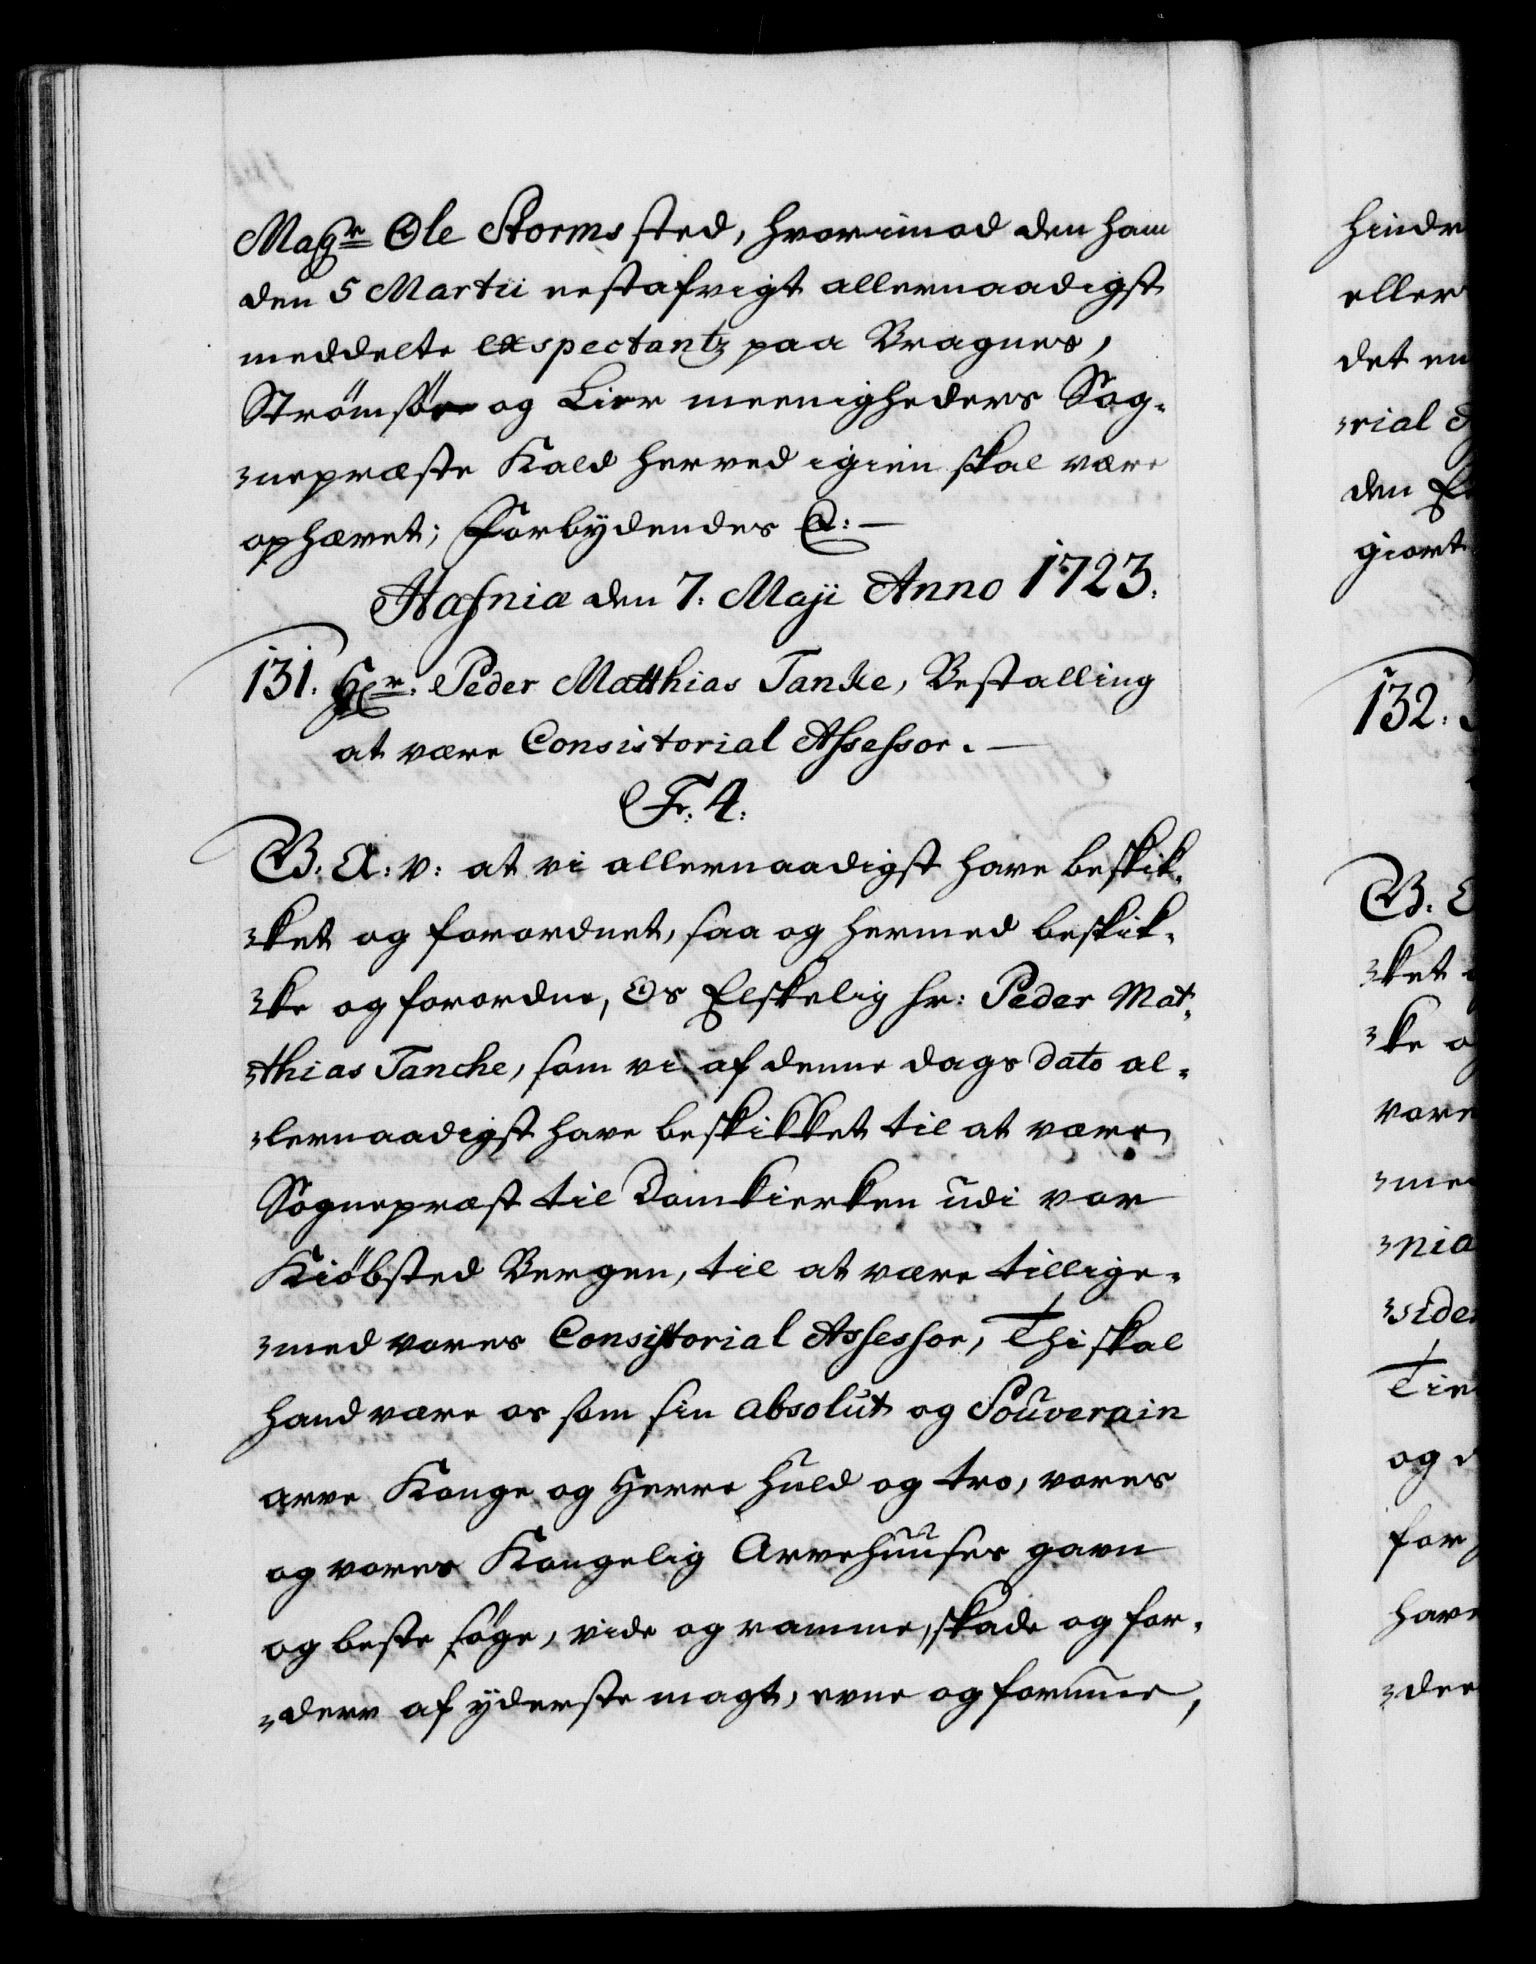 Magr Ole Storms sted, hvorimod den ham
den 5 Martii nestafvigt allernaadigst
meddelte exspectantz paa Bragnes,
Strømsøe og Lier meenigheders Sog-
-nepræste Kald herved igien skal være
ophævet; Forbydendes &:
Hafniæ den 7. Maji Anno 1723.
131. Hr. Peder Matthias Tanke, Bestalling
at være Consistorial Assessor.
Fr: 4:
G. A: v: at vi allernaadigst have beskik-
-ket og forordnet, saa og hermed beskik-
-ke og forordne, Os Elskelig hr: Peder Mat-
-thias Tanche, som vi af denne dags dato al-
-lernaadigst have beskikket til at være
Sognepræst til Domkierken udi vor
Kiøbsted Bergen, til at være tillige-
-med vores Consistorial Assessor, Thi skal
hand være os som sin absolut og Souverain
arve Konge og Herre huld og tro, vores
og vores Kongelig Arvehuuses gavn
og beste søge, vide og ramme, skade og for-
-derv af yderste magt, evne og formue,
hindr
eller
det en
-rial
den
giort
132.
ket
-ke
vore
-me
-nia
-side
Tie
og
for
have
-der